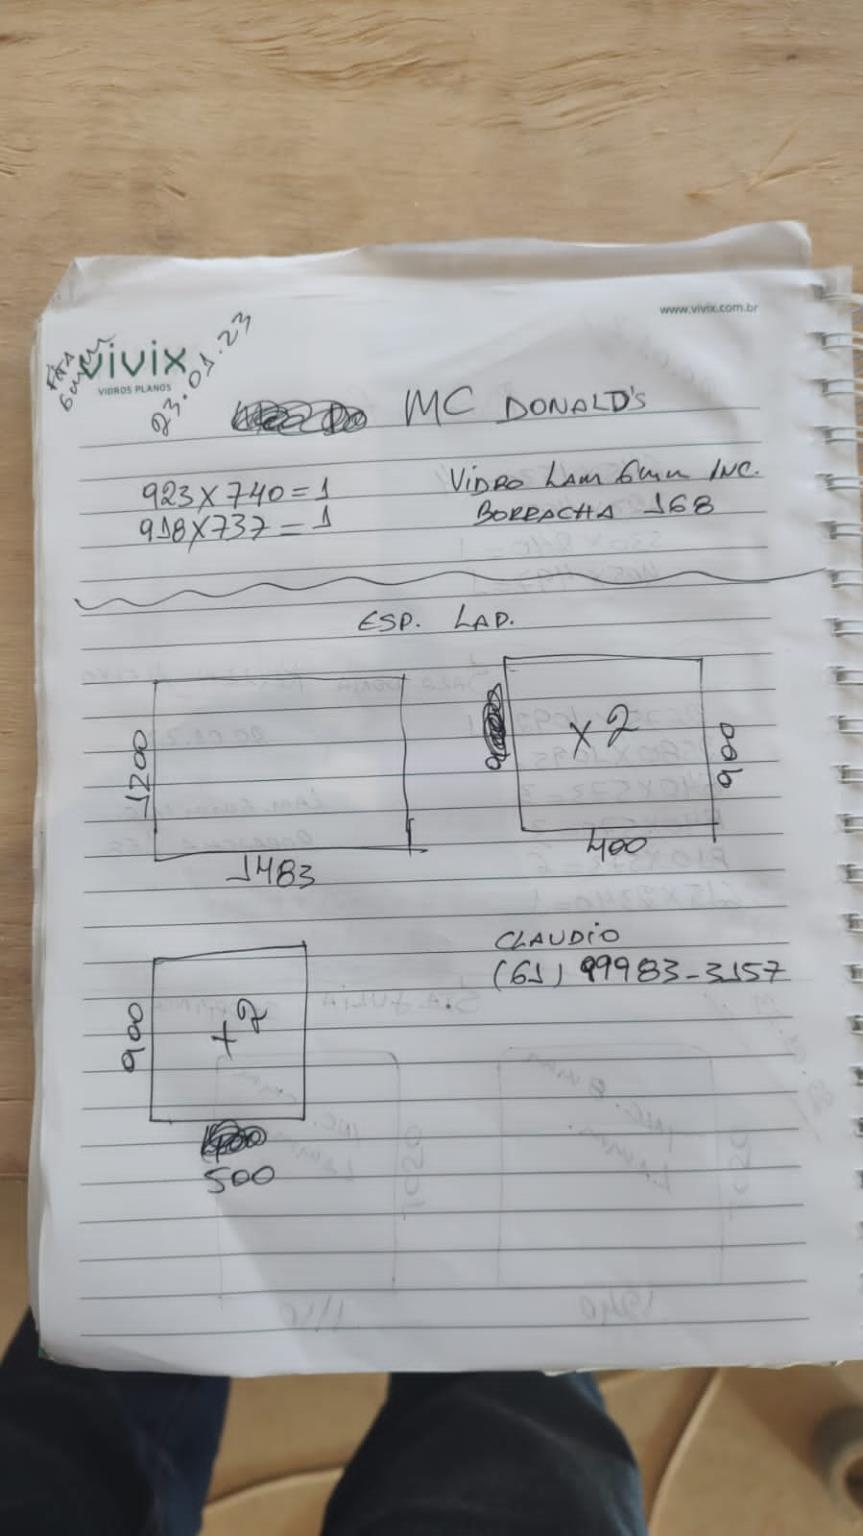 www.vivix.com.br
vivix
VIDROS PLANOS
6mm
23.01.23
MC DONALD'S
923X740=1
918X737=1
VIDRO LAM 6mm INC.
BORRACHA 168
ESP. LAP.
1200
1483
X2
900
400
900
+2
500
CLAUDIO
(61) 99983-3157